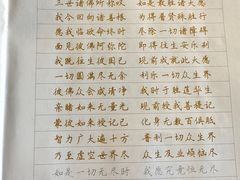 三世诸佛所称叹 如是最胜诸大愿
我今回向诸善根 为得普贤殊胜行
愿我临欲命终时 尽除一切诸障碍
面见彼佛阿弥陀 即得往生安乐刹
我既往生彼国已 现前成就此大愿
一切圆满尽无余 利乐一切众生界
彼佛众会咸清净 我时于胜莲华生
亲睹如来无量光 现前授我菩提记
蒙彼如来授记已 化身无数百俱胝
智力广大遍十方 普利一切众生界
乃至虚空世界尽 众生及业烦恼尽
如是一切无尽时 我愿究竟恒无尽